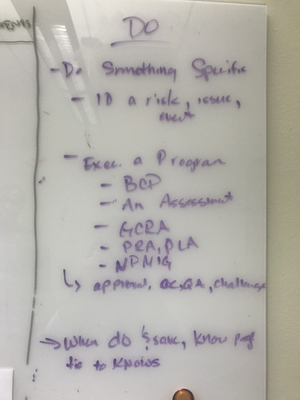 DO
- Do Something Specific
- ID a risk, issue,
event
- Exec. a Program
- BCP
- An Assessment
- GCRA
- PRA, DLA
- NPMIG
↳ approval, QA, challenge
→ When do &, know
tie to knows